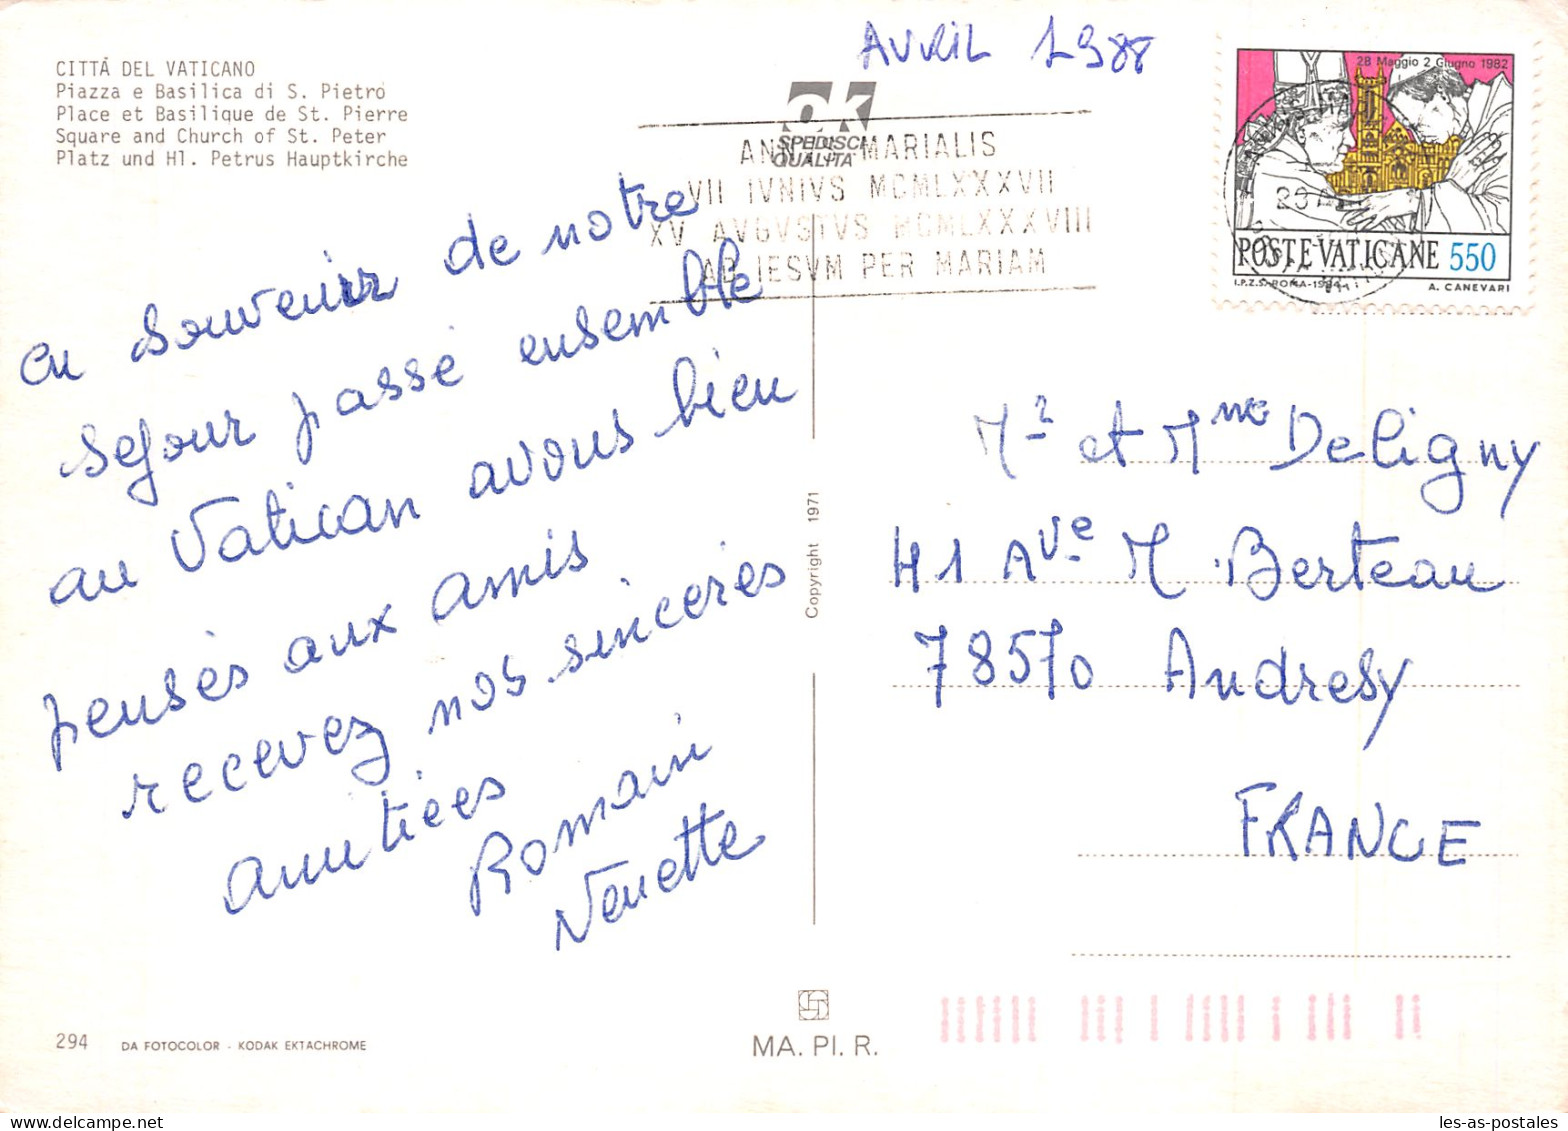 AVRIL 1988
CITTÁ DEL VATICANO
Piazza e Basilica di S. Pietro
Place et Basilique de St. Pierre
Square and Church of St. Peter
Platz und Hl. Petrus Hauptkirche
ok
SPEDISCI
QUALITÀ
MARIALIS
VII IVNIVS MCMLXXXVII
XV AVGVSTVS MCMLXXXVIII
AD IESVM PER MARIAM
28 Maggio 2 Giugno 1982
POSTE VATICANE 550
I.P.Z.S.-ROMA-1984
A. CANEVARI
en souvenir de notre
sejour passé ensemble
au Vatican avons bien
pensés aux amis
recevez nos sincères
amitiées
Romain
Nenette
Copyright 1971
Mr et Mme Deligny
41 Ave M. Berteau
78570 Andresy
FRANCE
294
DA FOTOCOLOR - KODAK EKTACHROME
MA. PI. R.
les-as-postales